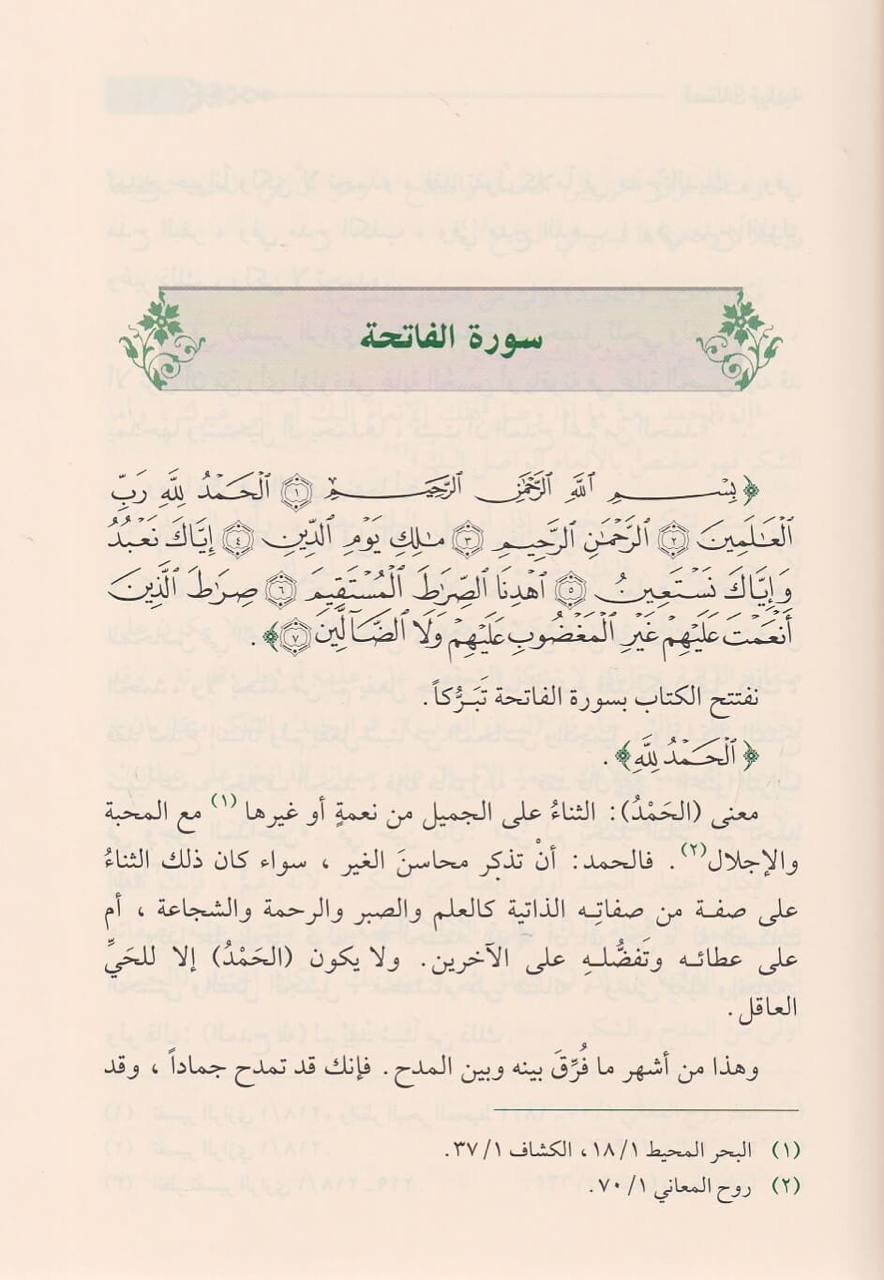 سورة الفاتحة
﴿بِسْمِ ٱللَّهِ ٱلرَّحْمَٰنِ ٱلرَّحِيمِ ١ ٱلْحَمْدُ لِلَّهِ رَبِّ
ٱلْعَٰلَمِينَ ٢ ٱلرَّحْمَٰنِ ٱلرَّحِيمِ ٣ مَٰلِكِ يَوْمِ ٱلدِّينِ ٤ إِيَّاكَ نَعْبُدُ
وَإِيَّاكَ نَسْتَعِينُ ٥ ٱهْدِنَا ٱلصِّرَٰطَ ٱلْمُسْتَقِيمَ ٦ صِرَٰطَ ٱلَّذِينَ
أَنْعَمْتَ عَلَيْهِمْ غَيْرِ ٱلْمَغْضُوبِ عَلَيْهِمْ وَلَا ٱلضَّآلِّينَ ٧﴾.
نفتتح الكتاب بسورة الفاتحة تَبَرُّكاً.
﴿ٱلْحَمْدُ لِلَّهِ﴾.
معنى (الحَمْدُ): الثناءُ على الجميل من نعمةٍ أو غيرها (١) مع المحبة
والإجلال(٢). فالحمد: أنْ تذكر محاسنَ الغير، سواء كان ذلك الثناءُ
على صفة من صفاتِه الذاتية كالعلم والصبر والرحمة والشجاعة، أم
على عطائه وتَفضُّلهِ على الآخرين. ولا يكون (الحَمْدُ) إلا للحَيِّ
العاقل.
وهذا من أشهر ما فُرِّقَ بينه وبين المدح. فإنك قد تمدح جماداً، وقد
(١) البحر المحيط ١/ ١٨، الكشاف ١/ ٣٧.
(٢) روح المعاني ١/ ٧٠.